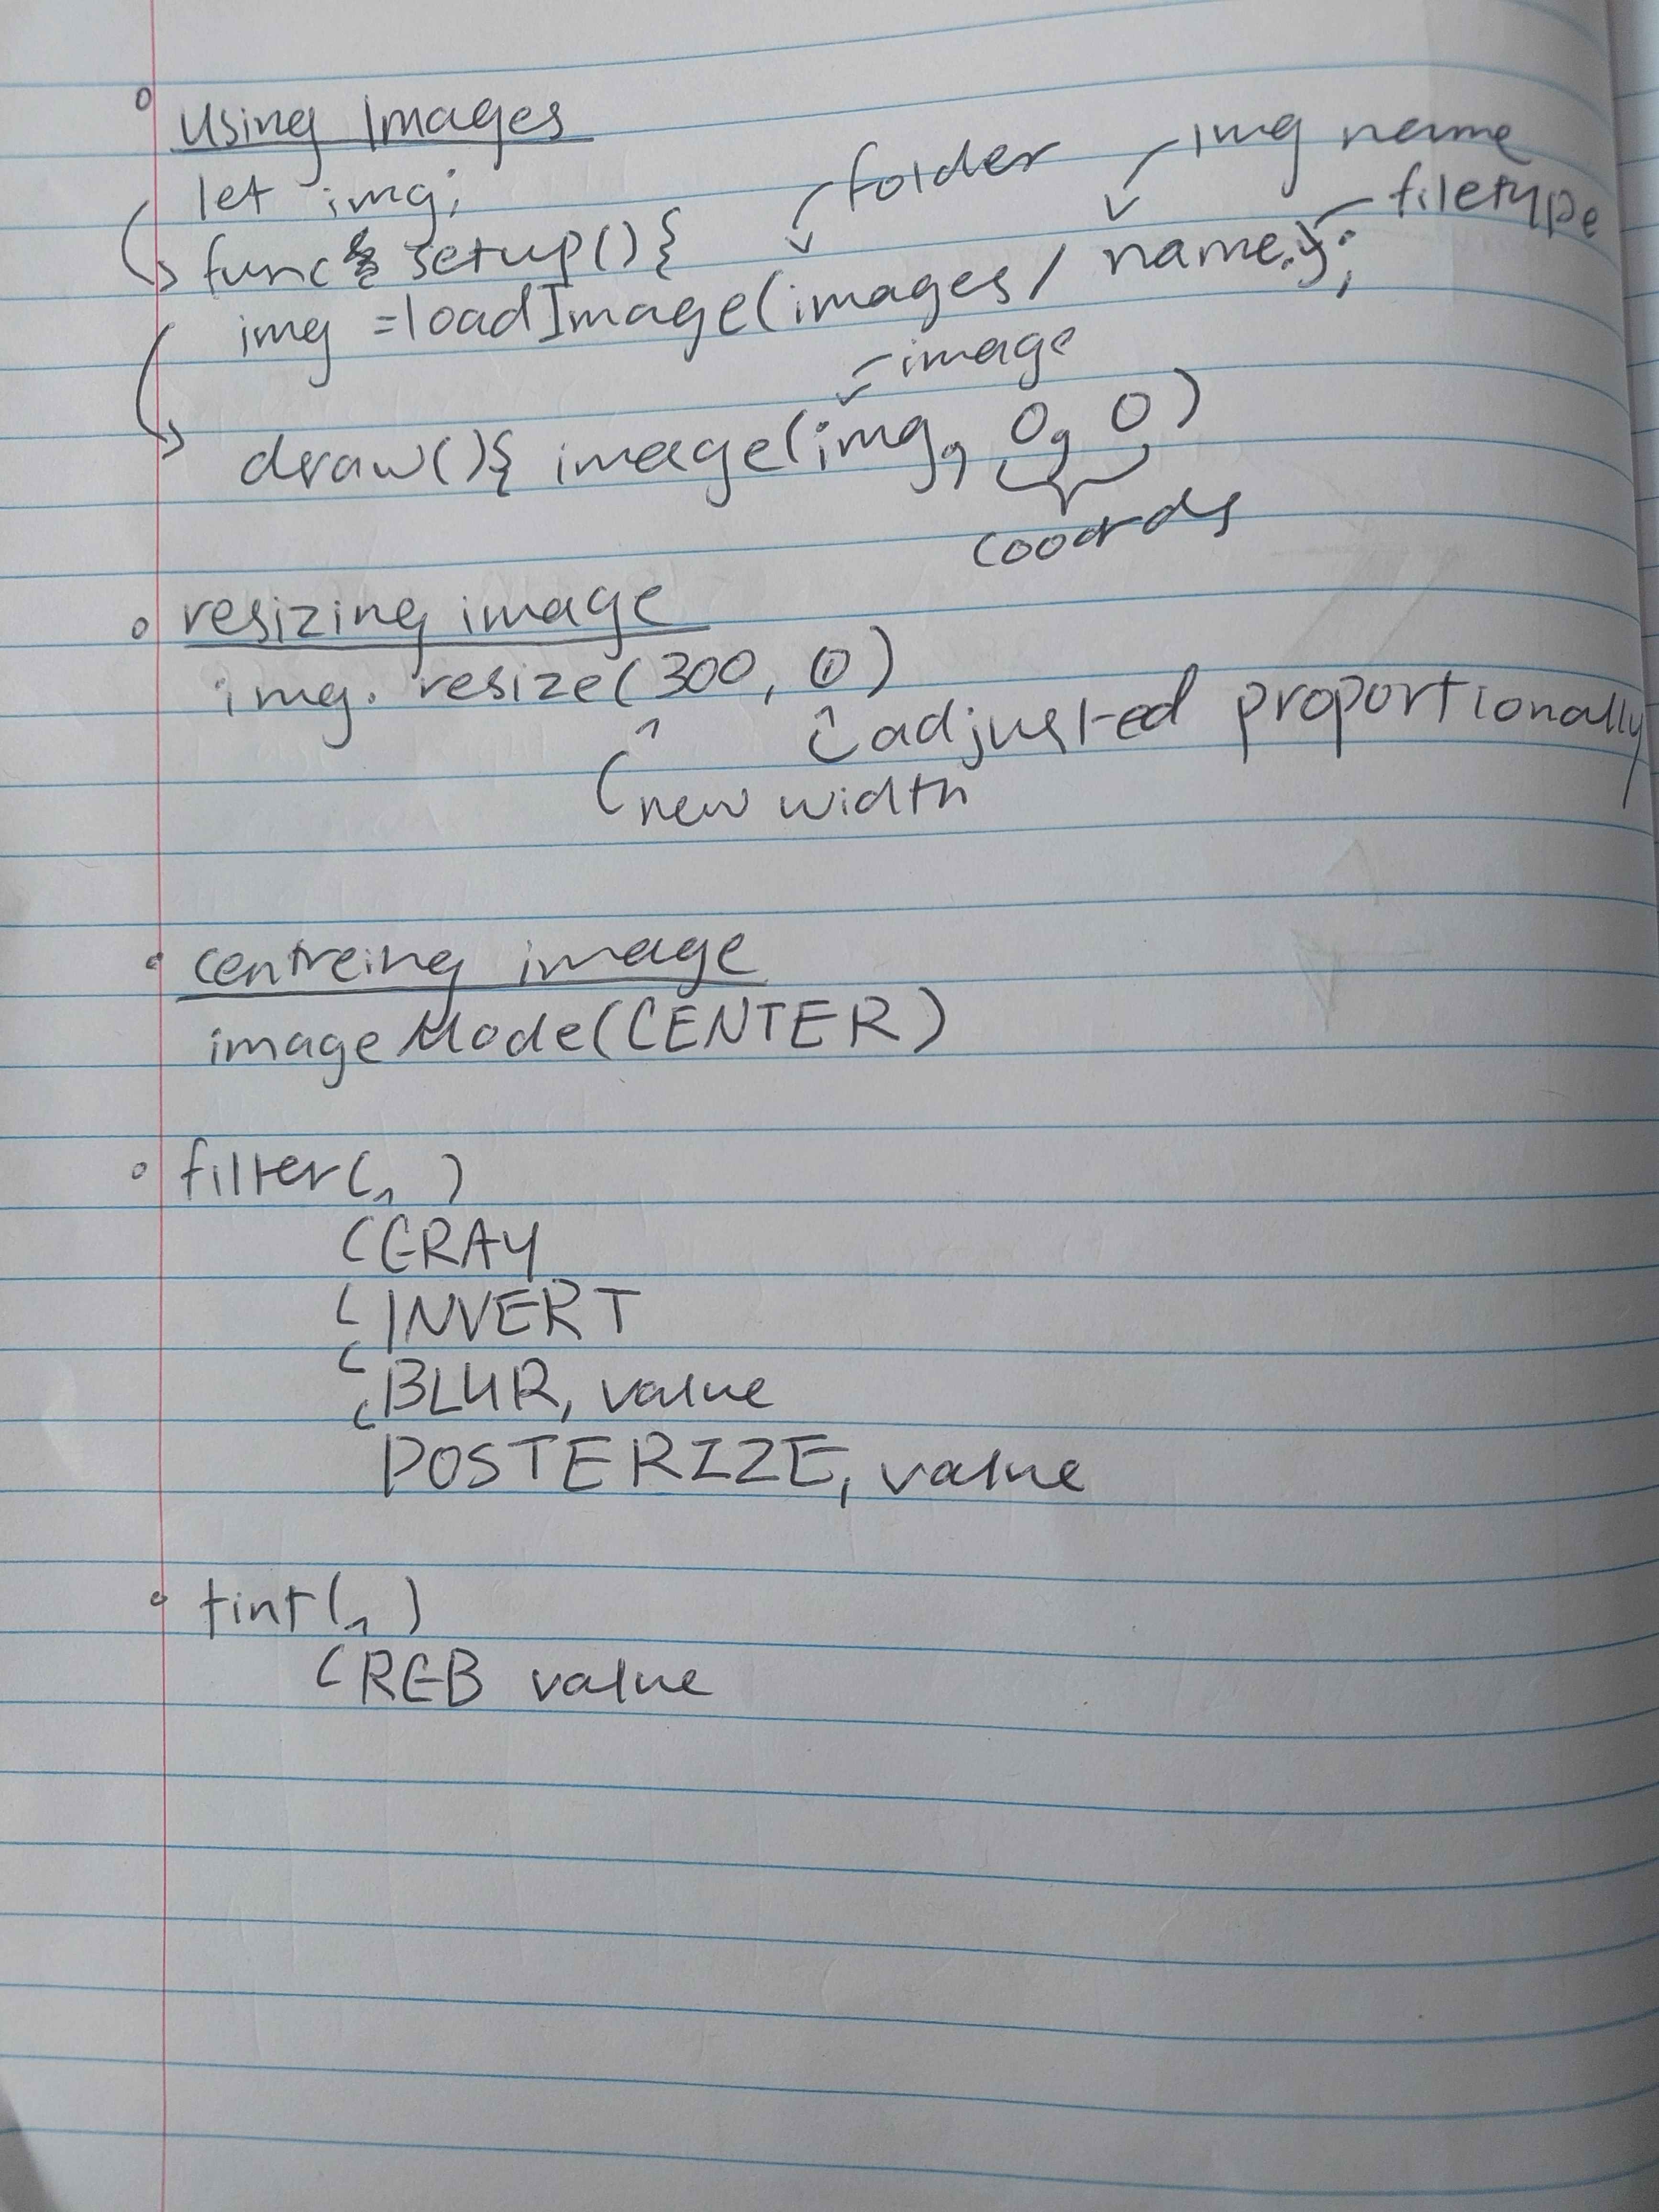 Using Images
let img;
folder
img name
filetype
func setup(){
img =loadImage(images/ name.);
image
draw(){ image(img, 0, 0)
coords
resizing image
img. resize(300, 0)
adjusted proportionally
new width
centreing image
imageMode(CENTER)
filter( , )
GRAY
INVERT
BLUR, value
POSTERIZE, value
tint( , )
RGB value